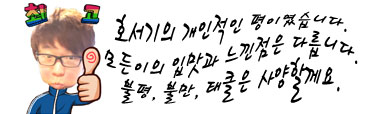 최고
호서기의 개인적인 평이였습니다.
모든이의 입맛과 느낀점은 다릅니다.
불평, 불만, 태클은 사양할께요.